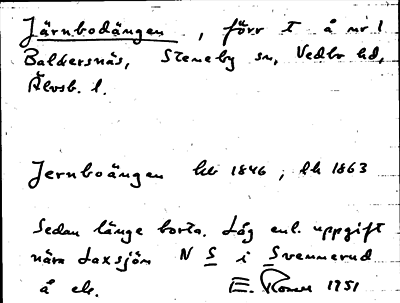 Järnbodängen, förr t å nr 1
Balkersnäs, Steneby sn, Vedbo hd,
Älvsb. l.
Jernboängen hk 1846, hk 1863
Sedan länge borta. Låg enl. uppgift
nära Laxsjön N S i Svennerud
å ek. E. Romer 1951